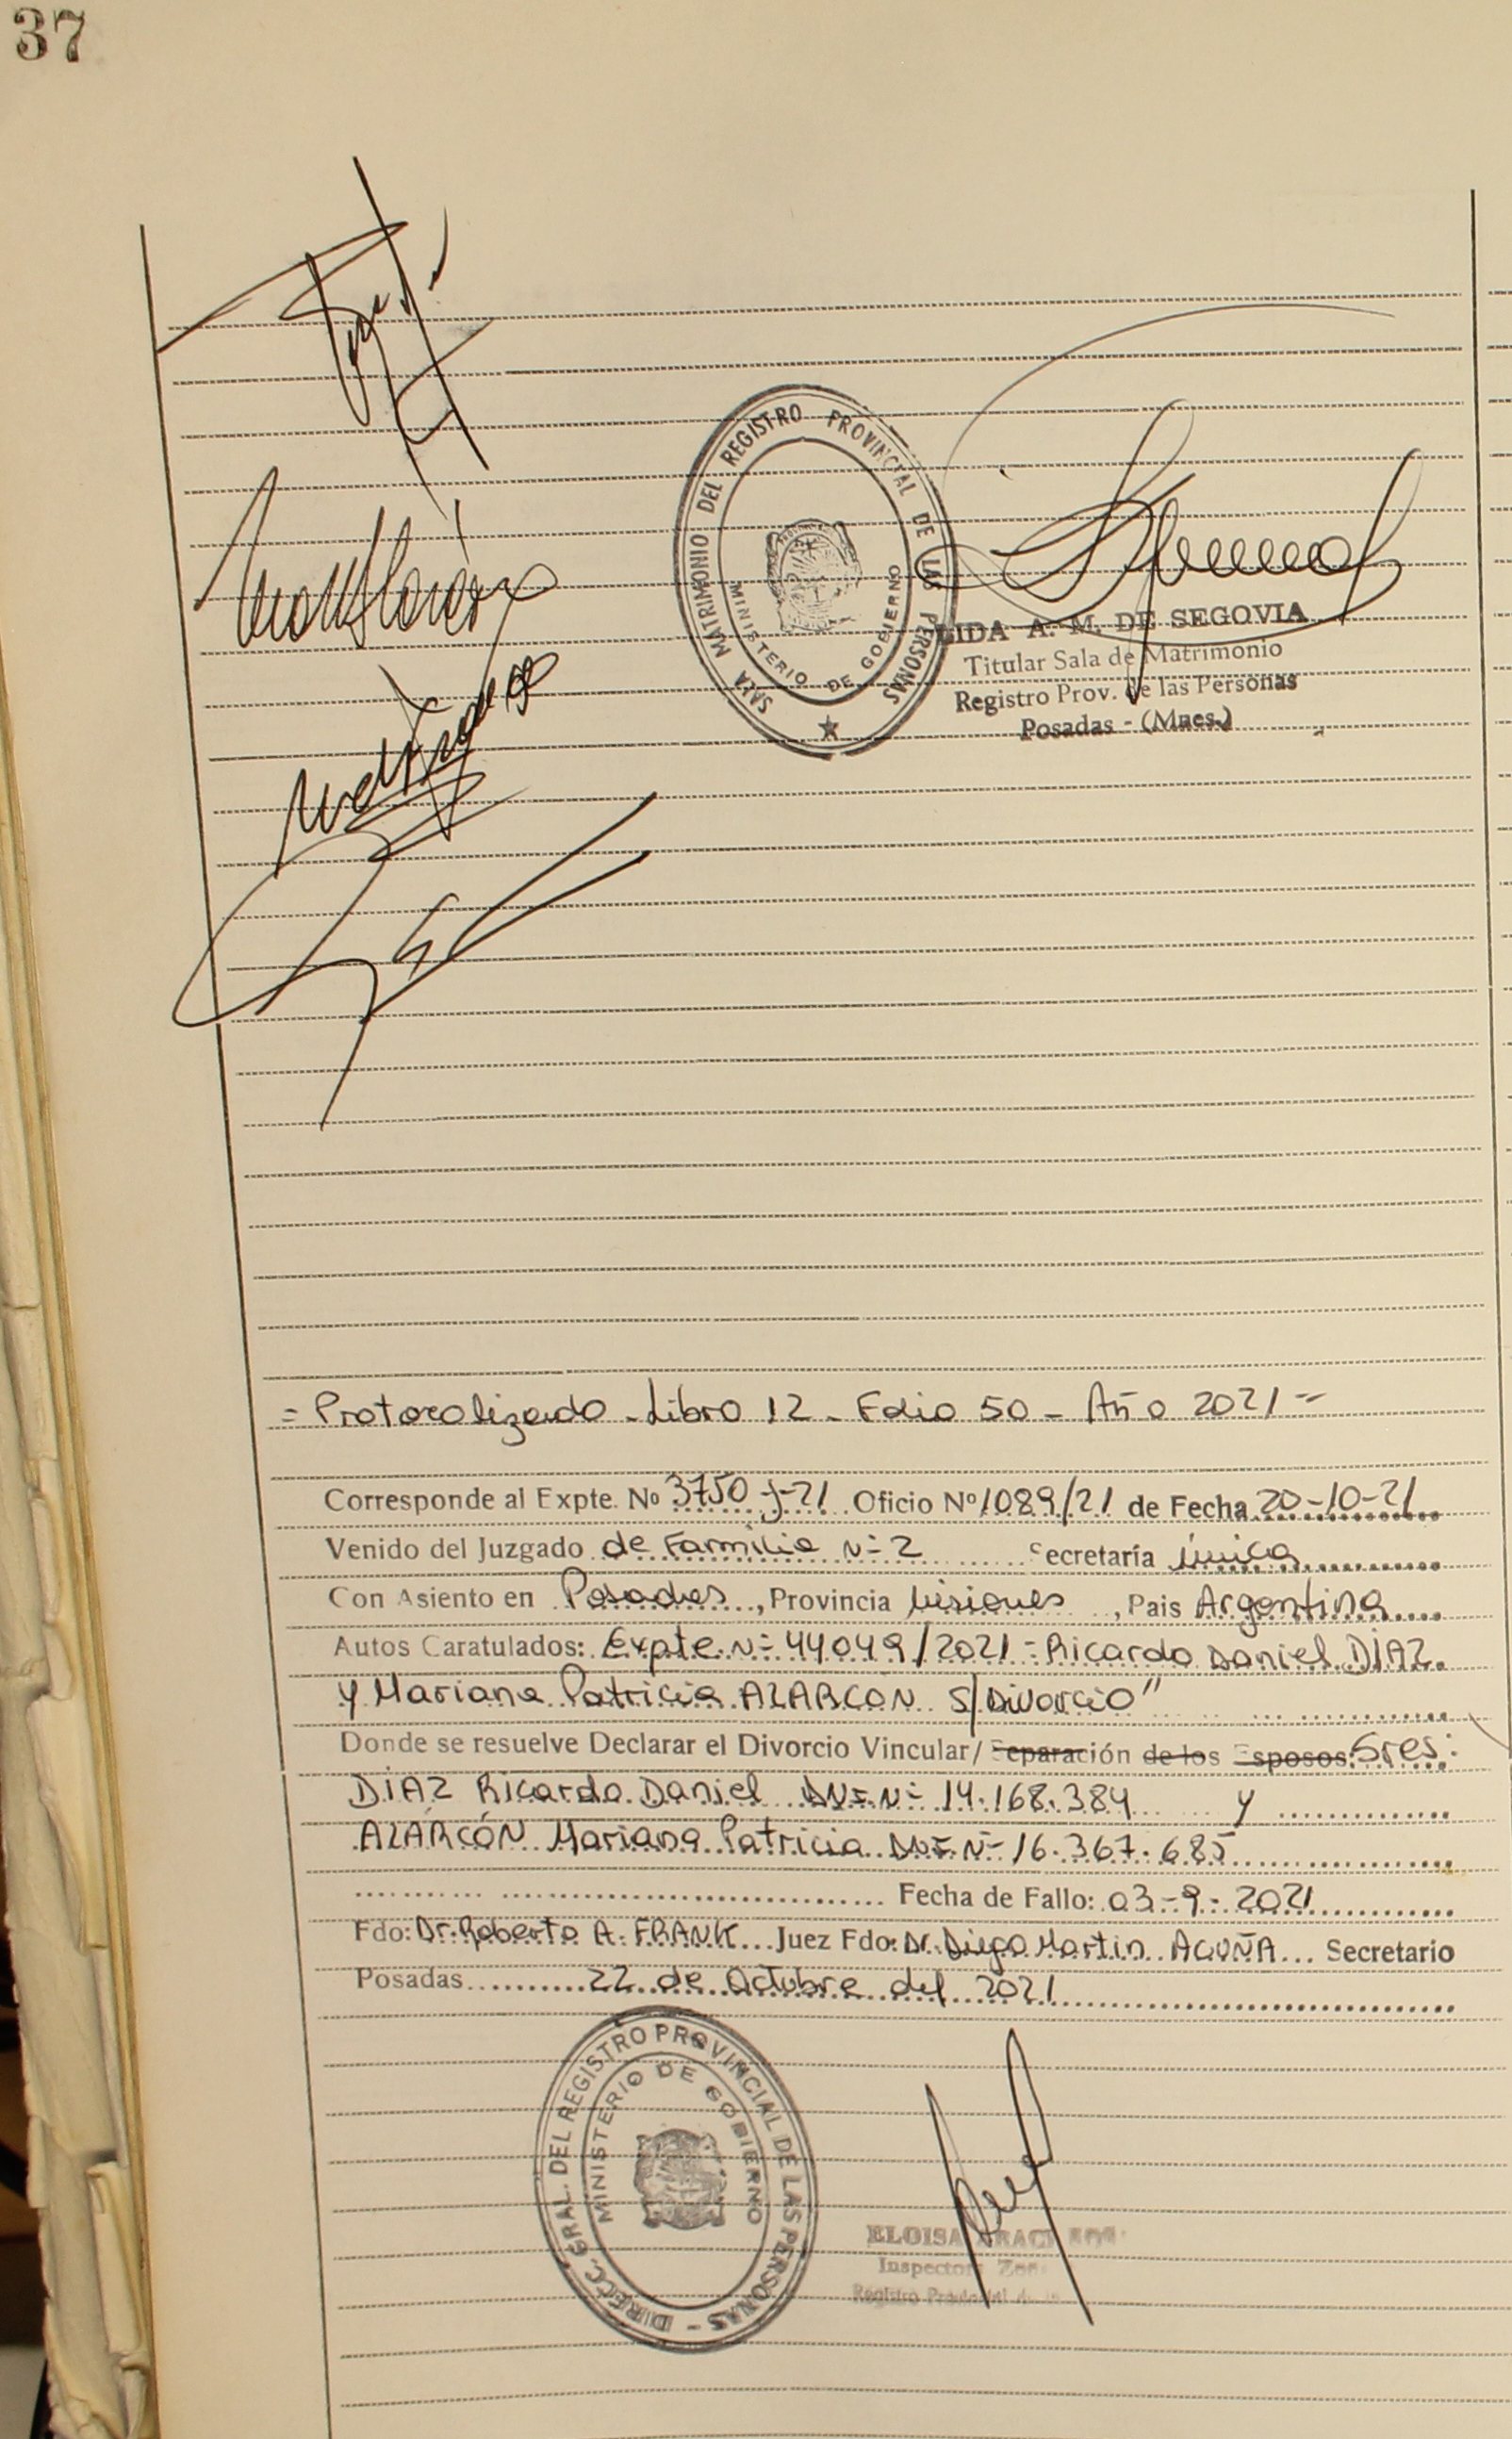 37
SALA MATRIMONIO DEL REGISTRO PROVINCIAL DE LAS PERSONAS
MINISTERIO DE GOBIERNO
LIDA A. M. DE SEGOVIA
Titular Sala de Matrimonio
Registro Prov. de las Personas
Posadas - (Mnes.)
= Protocolizado - Libro 12 - Folio 50 - Año 2021 =
Corresponde al Expte. Nº 3750-J-21 Oficio Nº 1089/21 de Fecha 20-10-21
Venido del Juzgado de Familia Nº 2 Secretaría única
Con Asiento en Posadas, Provincia Misiones, Pais Argentina
Autos Caratulados: Expte. Nº 44049/2021 - Ricardo Daniel DÍAZ
y Mariana Patricia ALARCON S/Divorcio"
Donde se resuelve Declarar el Divorcio Vincular/ Separación de los Esposos: Sres:
DÍAZ Ricardo Daniel DNI Nº 14.168.384 y
ALARCÓN Mariana Patricia DNI Nº 16.367.685
Fecha de Fallo: 03-9-2021
Fdo: Dr. Roberto A. FRANK Juez Fdo: Dr. Diego Martin ACUÑA Secretario
Posadas 22 de Octubre del 2021
DIRECC. GRAL. DEL REGISTRO PROVINCIAL DE LAS PERSONAS -
MINISTERIO DE GOBIERNO
ELOISA
Inspectora
Registro Provincial